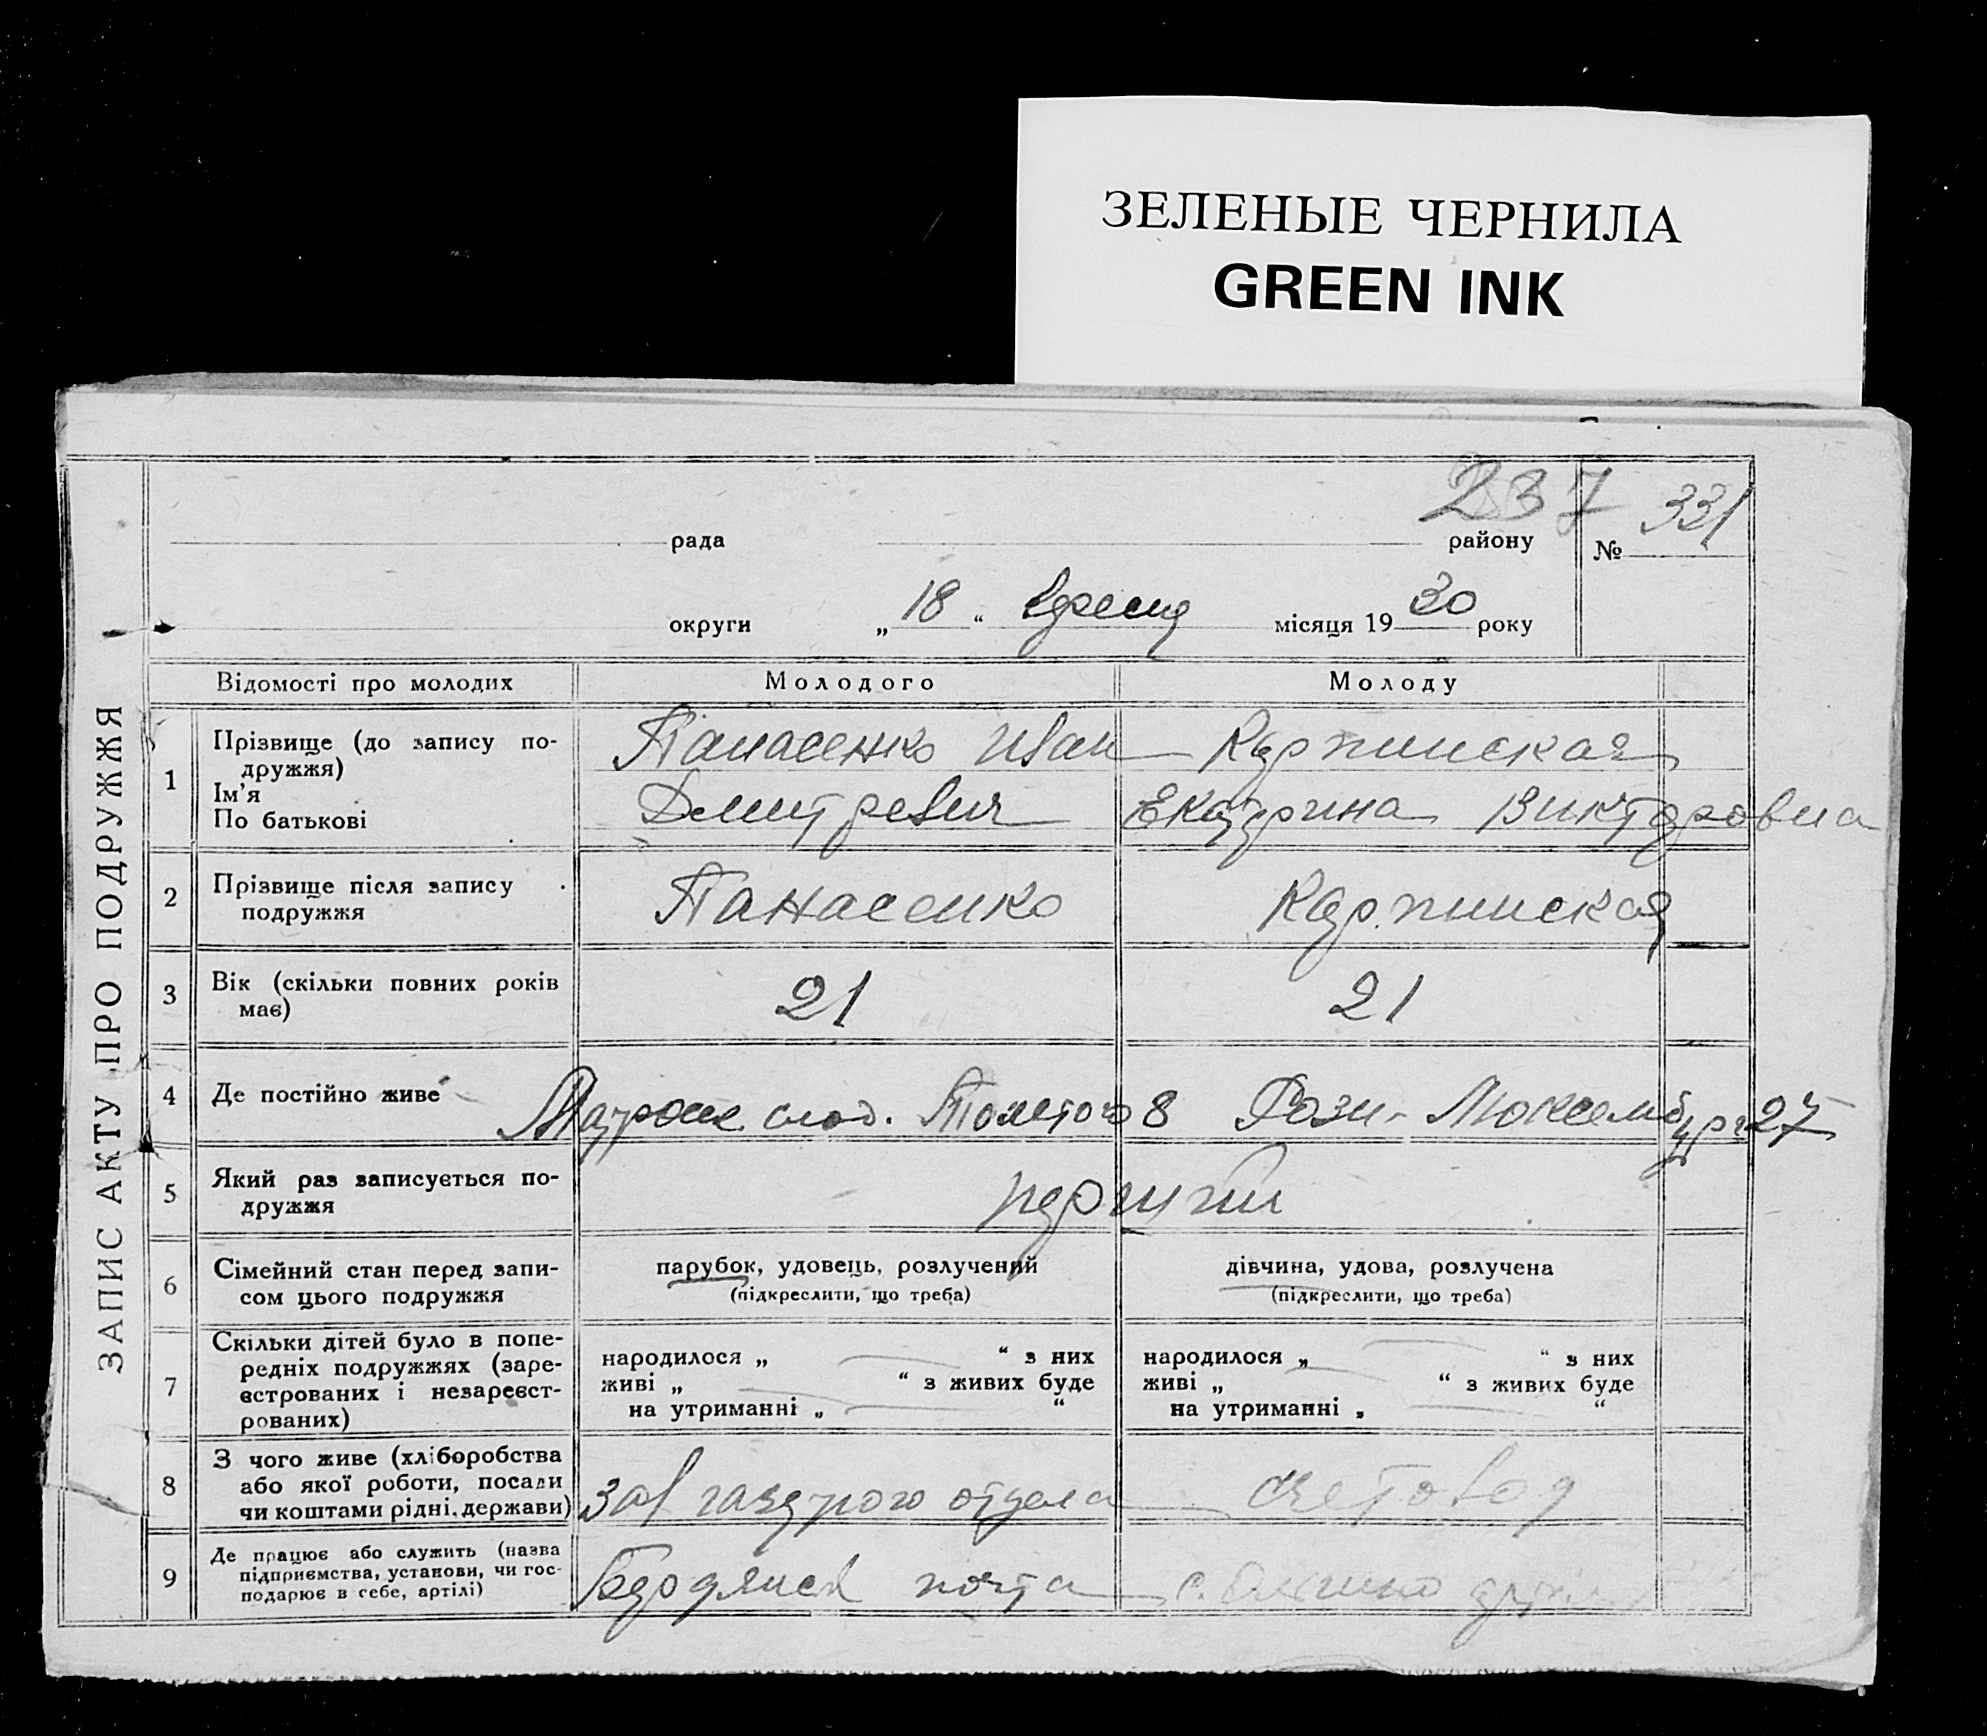 ЗЕЛЕНЫЕ ЧЕРНИЛА
GREEN INK
237
рада району № 331
округи „ 18 “ вресня місяця 19 30 року
ЗАПИС АКТУ ПРО ПОДРУЖЖЯ
Відомості про молодих Молодого Молоду
1 Прізвище (до запису по-
дружжя)
Ім'я
По батькові
Панасенко Иван
Дмитревич
Карпинская
Екатерина Викторовна
2 Прізвище після запису
подружжя
Панасенко
Карпинская
3 Вік (скільки повних років
має)
21
21
4 Де постійно живе
слод. Толстого 8
Рози Люксембург 27
5 Який раз записується по-
дружжя
перший
6 Сімейний стан перед запи-
сом цього подружжя
парубок, удовець, розлучений
(підкреслити, що треба)
дівчина, удова, розлучена
(підкреслити, що треба)
7 Скільки дітей було в попе-
редніх подружжях (заре-
єстрованих і незареєст-
рованих)
народилося „ “ з них
живі „ “ з живих буде
на утриманні „ “
народилося „ “ з них
живі „ “ з живих буде
на утриманні „ “
8 З чого живе (хліборобства
або якої роботи, посади
чи коштами рідні, держави)
Зав газетного отдела
счетовод
9 Де працює або служить (назва
підприємства, установи, чи гос-
подарює в себе, артілі)
Бердянск почта
с.